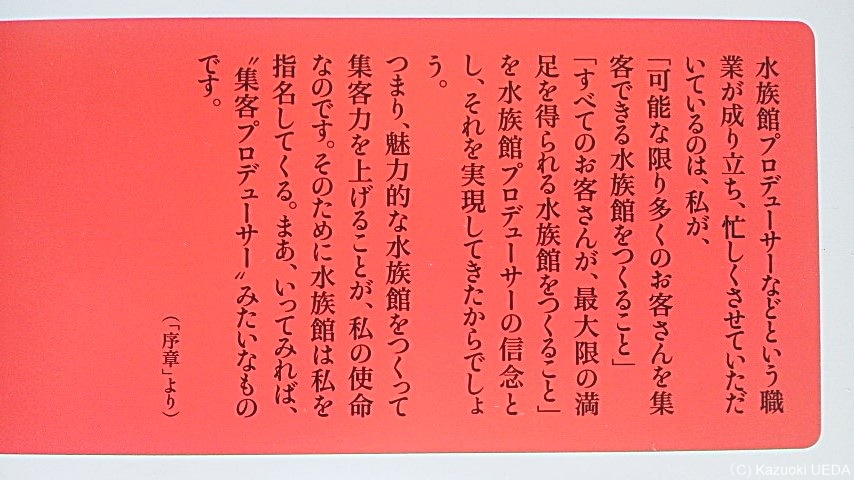 水族館プロデューサーなどという職
業が成り立ち、忙しくさせていただ
いているのは、私が、
「可能な限り多くのお客さんを集
客できる水族館をつくること」
「すべてのお客さんが、最大限の満
足を得られる水族館をつくること」
を水族館プロデューサーの信念と
し、それを実現してきたからでしょ
う。
つまり、魅力的な水族館をつくって
集客力を上げることが、私の使命
なのです。そのために水族館は私を
指名してくる。まあ、いってみれば、
〝集客プロデューサー〟みたいなもの
です。
(「序章」より)
(C) Kazuoki UEDA